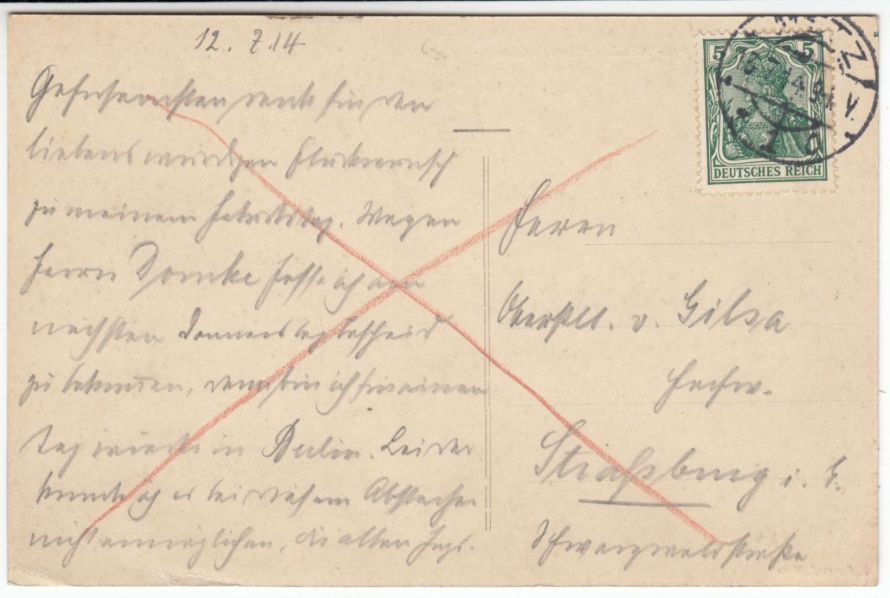 12. 7. 14
Gehorsamsten Dank für den
liebenswürdigen Glückwunsch
zu meinem Geburtstag. Wegen
Herrn Domke hoffe ich am
nächsten Donnerstag Bescheid
zu bekommen, dann bin ich für einen
Tag wieder in Berlin. Leider
konnte ich es bei diesem Abstecher
nicht ermöglichen, die alten
METZ
5 5
DEUTSCHES REICH
Herrn
Oberstlt. v. Gilsa
Straßburg i. E.
Schwarzwaldstraße